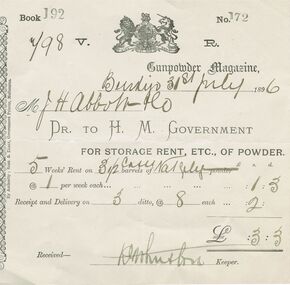 Book 192 No. 172
1/98 V. R.
Gunpowder Magazine,
Bendigo 31st July 1896
M J H Abbott & Co
DR. TO H. M. GOVERNMENT
FOR STORAGE RENT, ETC., OF POWDER.
5 Weeks' Rent on 3 barrels of powder
@ 1 per week each... ... ... ... : 1 : 3
Receipt and Delivery on 3 ditto @ 8 each ... : 2 :
£ : 3 : 3
Received— Keeper.